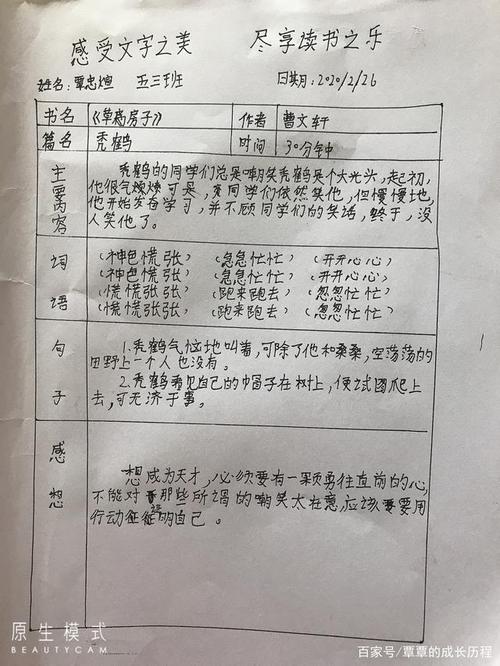 感受文字之美 尽享读书之乐
姓名：覃忠煊 五三班 日期：2020/2/26
书名 《草房子》 作者 曹文轩
篇名 秃鹤 时间 30分钟
主要内容
秃鹤的同学们总是嘲笑秃鹤是个大光头，起初，
他很气愤，可是，同学们依然笑他，但慢慢地，
他开始发奋学习，并不顾同学们的笑话，终于，没
人笑他了。
词语
（神色慌张） （急急忙忙） （开开心心）
（神色慌张） （急急忙忙） （开开心心）
（慌慌张张） （跑来跑去） （忽忽忙忙）
（慌慌张张） （跑来跑去） （忽忽忙忙）
句子
1.秃鹤气恼地叫着，可除了他和桑桑，空荡荡的
田野上一个人也没有。
2.秃鹤看见自己的帽子在树上，便试图爬上
去，可无济于事。
感想
想成为天才，必须要有一颗勇往直前的心，
不能对那些所谓的嘲笑太在意，应该要用
行动证明自己。
原生模式
BEAUTYCAM
百家号/覃覃的成长历程